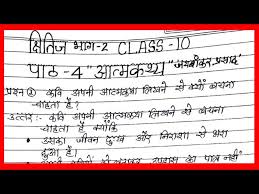 क्षितिज भाग-2 CLASS-10
पाठ-4 "आत्मकथ्य" "जयशंकर प्रसाद"
प्रश्न ① कवि अपनी आत्मकथा लिखने से क्यों बचना
चाहता है?
उत्तर:- कवि अपनी आत्मकथा लिखने से बचना
चाहता है क्योंकि
• उसका जीवन दुःख और निराशा से भरा
हुआ है।
का पात्र नहीं